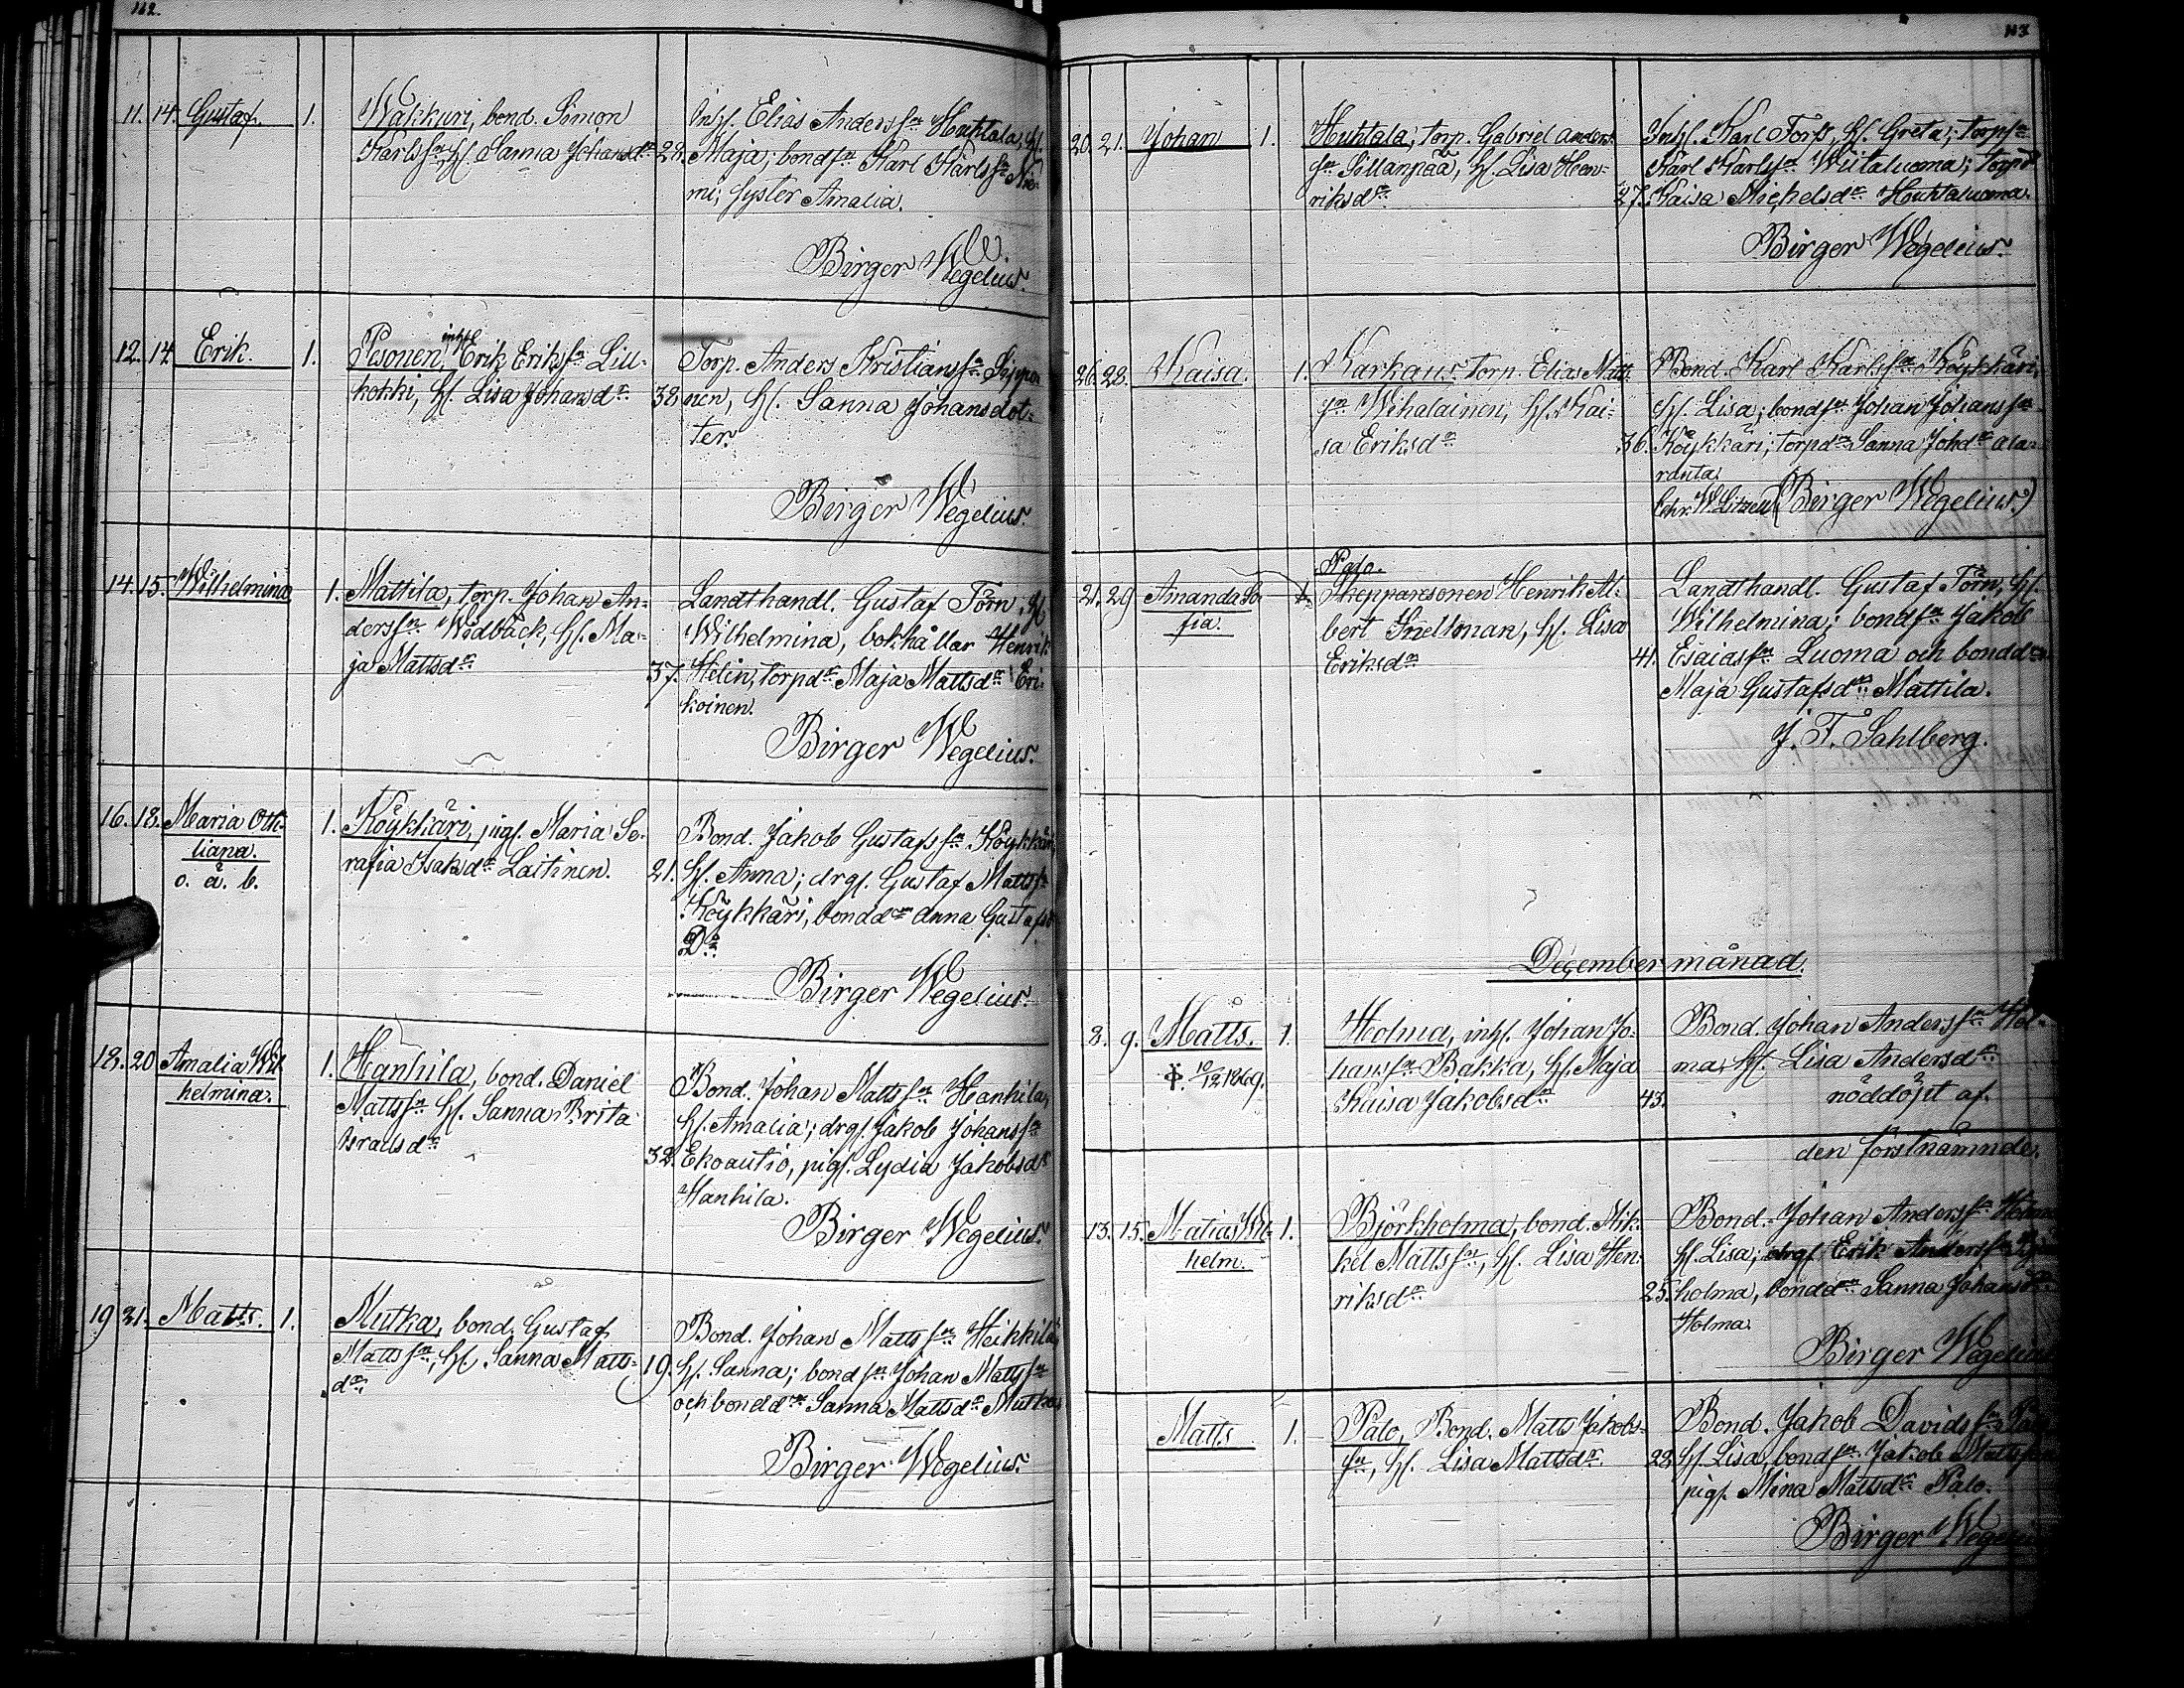 112.
11. 14. Gustaf. 1. Wakkuri, bond. Simon
Karlsson, hf. Sanna Johansdr
28.
Inhs. Elias Andersson Huhtala, hf.
Maja; bondsn Karl Karlsson Nie-
mi; syster Amalia.
Birger Wegelius.
12. 14. Erik. 1. Pesonen, inhs Erik Eriksn Liu-
kokki, hf. Lisa Johansdr
38.
Torp. Anders Kristiansn Seppo
nen, hf. Sanna Johansdot-
ter.
Birger Wegelius.
14. 15. Wilhelmina 1. Mattila, torp. Johan An-
derssn Wedbäck, hf. Ma-
ja Mattsdr
37.
Landthandl. Gustaf Törn, hf.
Wilhelmina, bokhållar Henrik
Helin, torpdr Maja Mattsdr Eri-
koinen.
Birger Wegelius.
16. 18. Maria Oth-
liana.
o. ä. b.
1. Köykkäri, pigs. Maria Se-
rafia Isaksdr Laitinen.
21.
Bond. Jakob Gustafssn Köykkäri
hf. Anna; drgs. Gustaf Mattssn
Köykkäri, bonddrn Anna Gustafsd
Do
Birger Wegelius.
18. 20 Amalia Wil
helmina.
1. Hanhila, bond. Daniel
Mattssn hf. Sanna Brita
Israelsdr
32.
Bond. Johan Mattssn Hanhila,
hf. Amalia; drgs. Jakob Johanssn
Ekoautio, pigs. Lydia Jakobsdr
Hanhila.
Birger Wegelius.
19 21. Matts. 1. Mutka, bond. Gustaf
Mattssn, hf. Sanna Matts-
dr
19.
Bond. Johan Mattssn Heikkilä,
hf. Sanna; bondsn Johan Mattssn
och bonddrn Sanna Mattsdr Mutka.
Birger Wegelius.
113
20. 21. Johan 1. Huhtala, torp. Gabriel Anders-
sn Sillanpää, hf. Lisa Hen-
riksdr
27.
Inhs. Karl Fors, hf. Greta; torpsn
Karl Karlssn Wiitaluoma; torpdr
Kaisa Michelsdr Huhtaluoma.
Birger Wegelius.
26. 28. Kaisa. 1. Karhaus torp. Elias Matts
sn Wihalainen, hf. Kai-
sa Eriksdr
36.
Bond. Karl Karlssn Köykkäri,
hf. Lisa; bondsn Johan Johanssn
Köykkäri; torpdr Sanna Johdr Ala-
ranta.
(Birger Wegelius.)
21. 29 Amanda So
fia.
1. Palo.
Skepparesonen Henrik Al-
bert Snellman, hf. Lisa
Eriksdr
41.
Landthandl. Gustaf Törn, hf.
Wilhelmina; bondsn Jakob
Esaiassn Luoma och bonddrn
Maja Gustafsdr Mattila.
J. F. Sahlberg.
December månad.
8. 9. Matts.
† 10/12 1869.
1. Holma, inhs. Johan Jo-
hanssn Bakka, hf. Maja
Kaisa Jakobsdr
43.
Bond. Johan Anderssn Hol-
ma, hf. Lisa Andersdr
nöddöpt af
den förstnämnde.
13. 15. Matias Wil-
helm.
1. Björkholma, bond. Mik-
kel Mattssn, hf. Lisa Hen-
riksdr
25.
Bond. Johan Anderssn Holma
hf. Lisa; drgs. Erik Anderssn Björk
holma, bonddrn Sanna Johansdr
Holma.
Birger Wegelius
Matts 1. Palo, Bond. Matts Jakobs-
sn, hf. Lisa Mattsdr.
28.
Bond. Jakob Davidssn Palo
hf. Lisa, bondsn Jakob Mattssn
pigs. Mina Mattsdr Palo.
Birger Wegelius